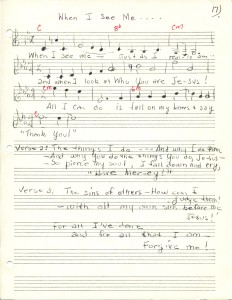 17)
When I See Me.....
C B♭ Cm7
When I see me — Just as I really am
and when I look at Who you are Je-sus!
Cm
All I can do is fall on my knees & say
C
"Thank You!"
Verse 2: The things I do --- And why I do them
-And why You do the things You do, Jesus-
- So pierce my soul, I fall down and cry,
"Have Mercy!"
Verse 3. The sins of others - How can I
judge them!
- with all my own sin before me
Jesus!
For all I've done
and for all that I am -
Forgive me!